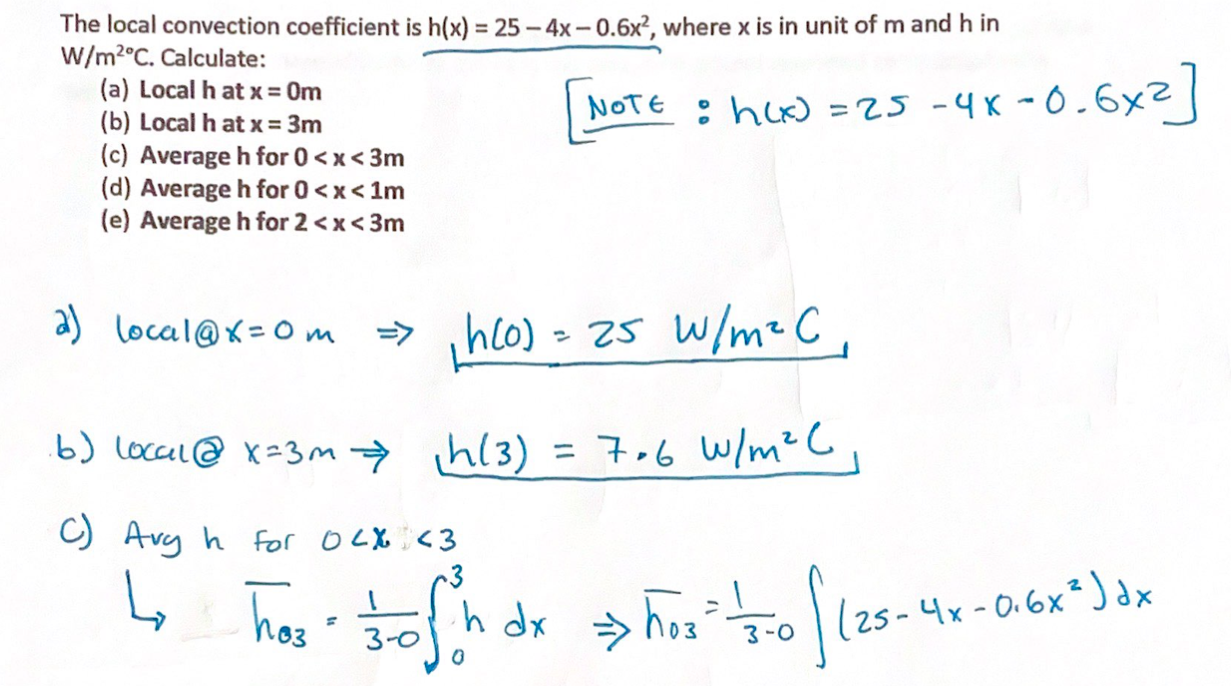 The local convection coefficient is h(x) = 25 – 4x – 0.6x², where x is in unit of m and h in
W/m²°C. Calculate:
(a) Local h at x = 0m
(b) Local h at x = 3m
(c) Average h for 0 < x < 3m
(d) Average h for 0 < x < 1m
(e) Average h for 2 < x < 3m
[NOTE : h(x) = 25 - 4x - 0.6x²]
a) local@x=0 m ⇒ h(0) = 25 W/m² C
b) local@ x=3m ⇒ h(3) = 7.6 W/m² C
C) Avg h for 0<x<3
↳ h̅₀₃ = 1/(3-0) ∫₀³ h dx ⇒ h̅₀₃ = 1/(3-0) ∫(25-4x-0.6x²)dx